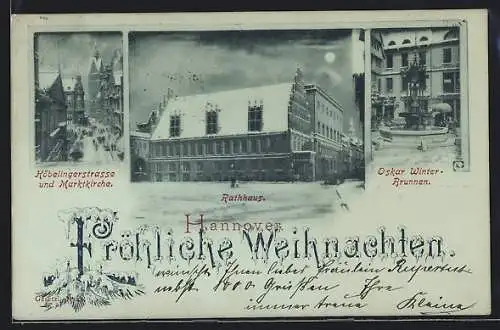 Höbelingerstrasse
und Marktkirche.
Rathhaus.
Oskar Winter-
Brunnen.
Hannover.
Fröhliche Weihnachten.
wünscht Ihnen lieber Fräulein
nebst 1000 Grüßen Ihre
immer treue Kleine